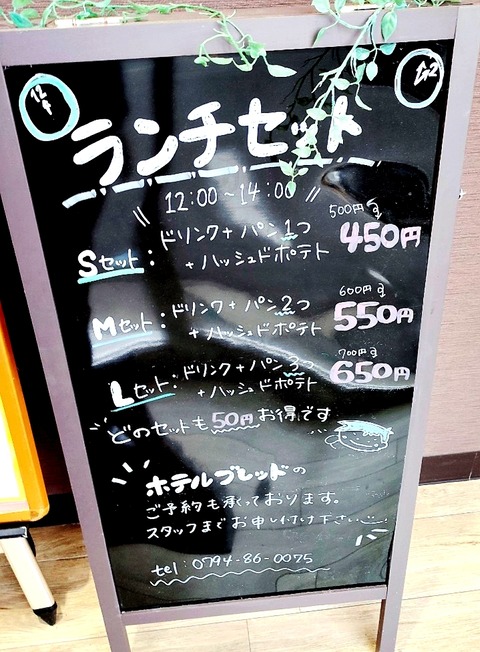 ランチセット
12:00~14:00
Sセット: ドリンク+パン1つ
+ハッシュドポテト
500円を
450円
Mセット: ドリンク+パン2つ
+ハッシュドポテト
600円を
550円
Lセット: ドリンク+パン3つ
+ハッシュドポテト
700円を
650円
どのセットも50円お得です
ホテルブレッドの
ご予約も承っております。
スタッフまでお申し付け下さい
tel:0794-86-0075